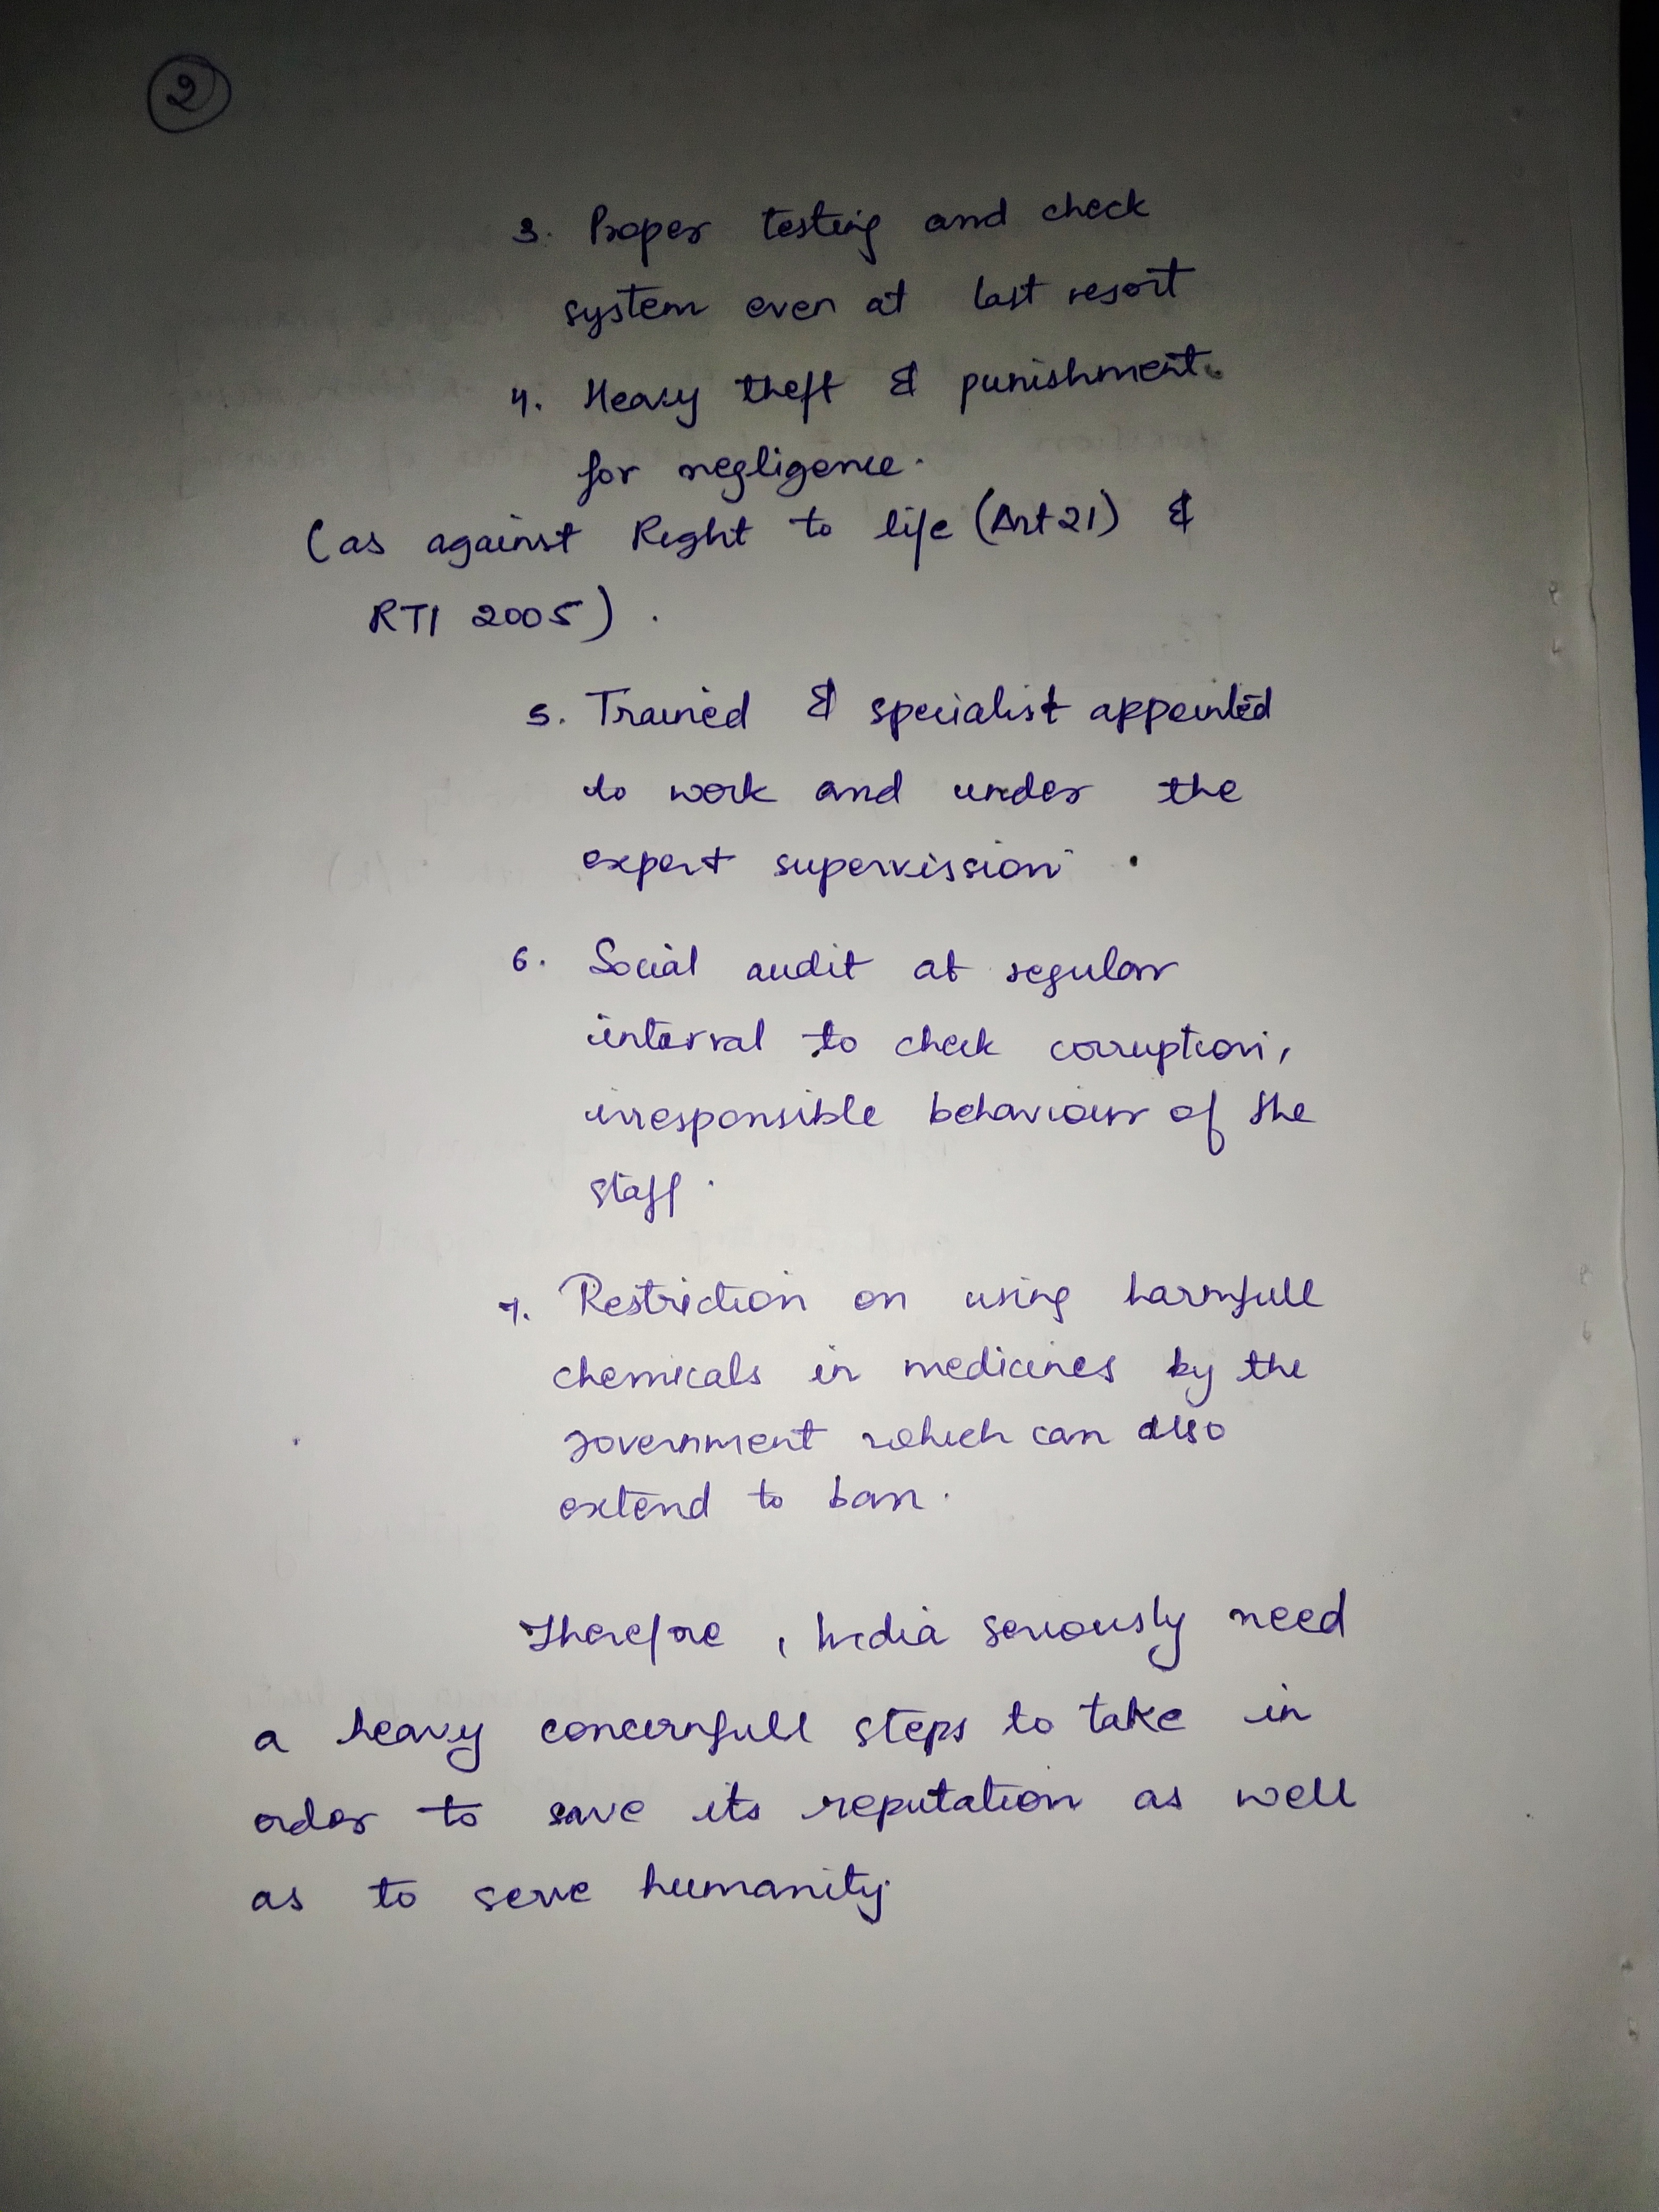 2
3. Proper testing and check
system even at last resort
4. Heavy theft & punishment
for negligence.
(as against Right to life (Art 21) &
RTI 2005).
5. Trained & specialist appointed
to work and under the
expert supervission.
6. Social audit at regular
interval to check corruption,
irresponsible behaviour of the
staff.
7. Restriction on using harmfull
chemicals in medicines by the
government which can also
extend to ban.
Therefore, India seriously need
a heavy concernfull steps to take in
order to save its reputation as well
as to serve humanity.